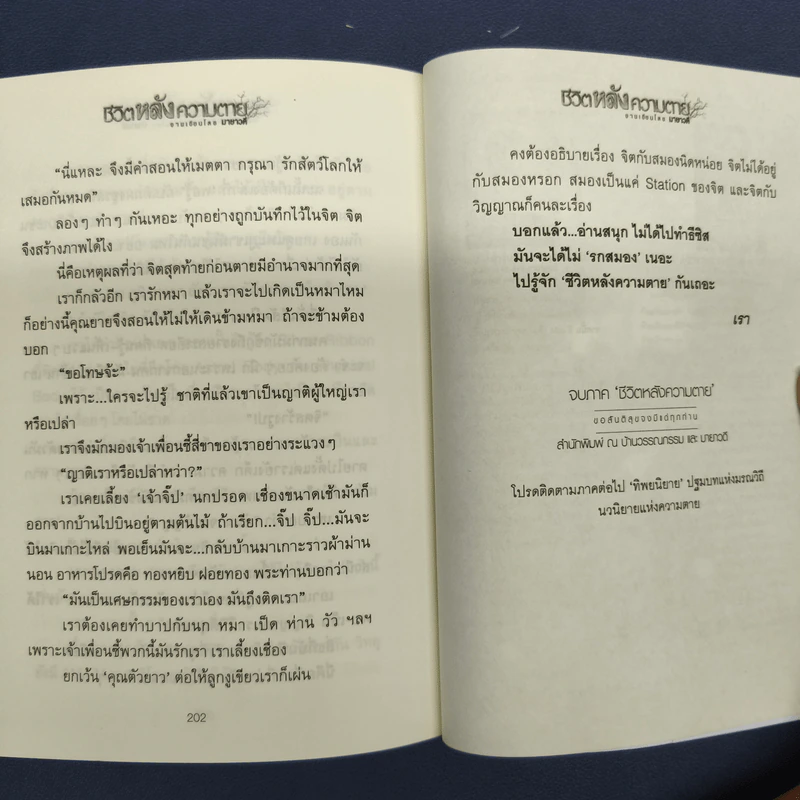 ชีวิตหลังความตาย
งานเขียนโดย มายาวดี
“นี่แหละ จึงมีคำสอนให้เมตตา กรุณา รักสัตว์โลกให้
เสมอกันหมด”
ลองๆ ทำๆ กันเหอะ ทุกอย่างถูกบันทึกไว้ในจิต จิต
จึงสร้างภาพได้ไง
นี่คือเหตุผลที่ว่า จิตสุดท้ายก่อนตายมีอำนาจมากที่สุด
เราก็กลัวอีก เรารักหมา แล้วเราจะไปเกิดเป็นหมาไหม
ก็อย่างนี้คุณยายจึงสอนให้ไม่ให้เดินข้ามหมา ถ้าจะข้ามต้อง
บอก
“ขอโทษจ้ะ”
เพราะ...ใครจะไปรู้ ชาติที่แล้วเขาเป็นญาติผู้ใหญ่เรา
หรือเปล่า
เราจึงมักมองเจ้าเพื่อนซี้สี่ขาของเราอย่างระแวงๆ
“ญาติเราหรือเปล่าหว่า?”
เราเคยเลี้ยง ‘เจ้าจิ๊ป’ นกปรอด เชื่องขนาดเช้ามันก็
ออกจากบ้านไปบินอยู่ตามต้นไม้ ถ้าเรียก...จิ๊ป จิ๊ป...มันจะ
บินมาเกาะไหล่ พอเย็นมันจะ...กลับบ้านมาเกาะราวผ้าม่าน
นอน อาหารโปรดคือ ทองหยิบ ฝอยทอง พระท่านบอกว่า
“มันเป็นเศษกรรมของเราเอง มันถึงติดเรา”
เราต้องเคยทำบาปกับนก หมา เป็ด ห่าน วัว ฯลฯ
เพราะเจ้าเพื่อนซี้พวกนี้มันรักเรา เราเลี้ยงเชื่อง
ยกเว้น ‘คุณตัวยาว’ ต่อให้ลูกงูเขียวเราก็เผ่น
202
ชีวิตหลังความตาย
งานเขียนโดย มายาวดี
คงต้องอธิบายเรื่อง จิตกับสมองนิดหน่อย จิตไม่ได้อยู่
กับสมองหรอก สมองเป็นแค่ Station ของจิต และจิตกับ
วิญญาณก็คนละเรื่อง
บอกแล้ว...อ่านสนุก ไม่ได้ไปทำธีซิส
มันจะได้ไม่ ‘รกสมอง’ เนอะ
ไปรู้จัก ‘ชีวิตหลังความตาย’ กันเถอะ
เรา
จบภาค ‘ชีวิตหลังความตาย’
ขอสันติสุขจงมีแด่ทุกท่าน
สำนักพิมพ์ ณ บ้านวรรณกรรม และ มายาวดี
โปรดติดตามภาคต่อไป ‘ทิพยนิยาย’ ปฐมบทแห่งมรณวิถี
นวนิยายแห่งความตาย